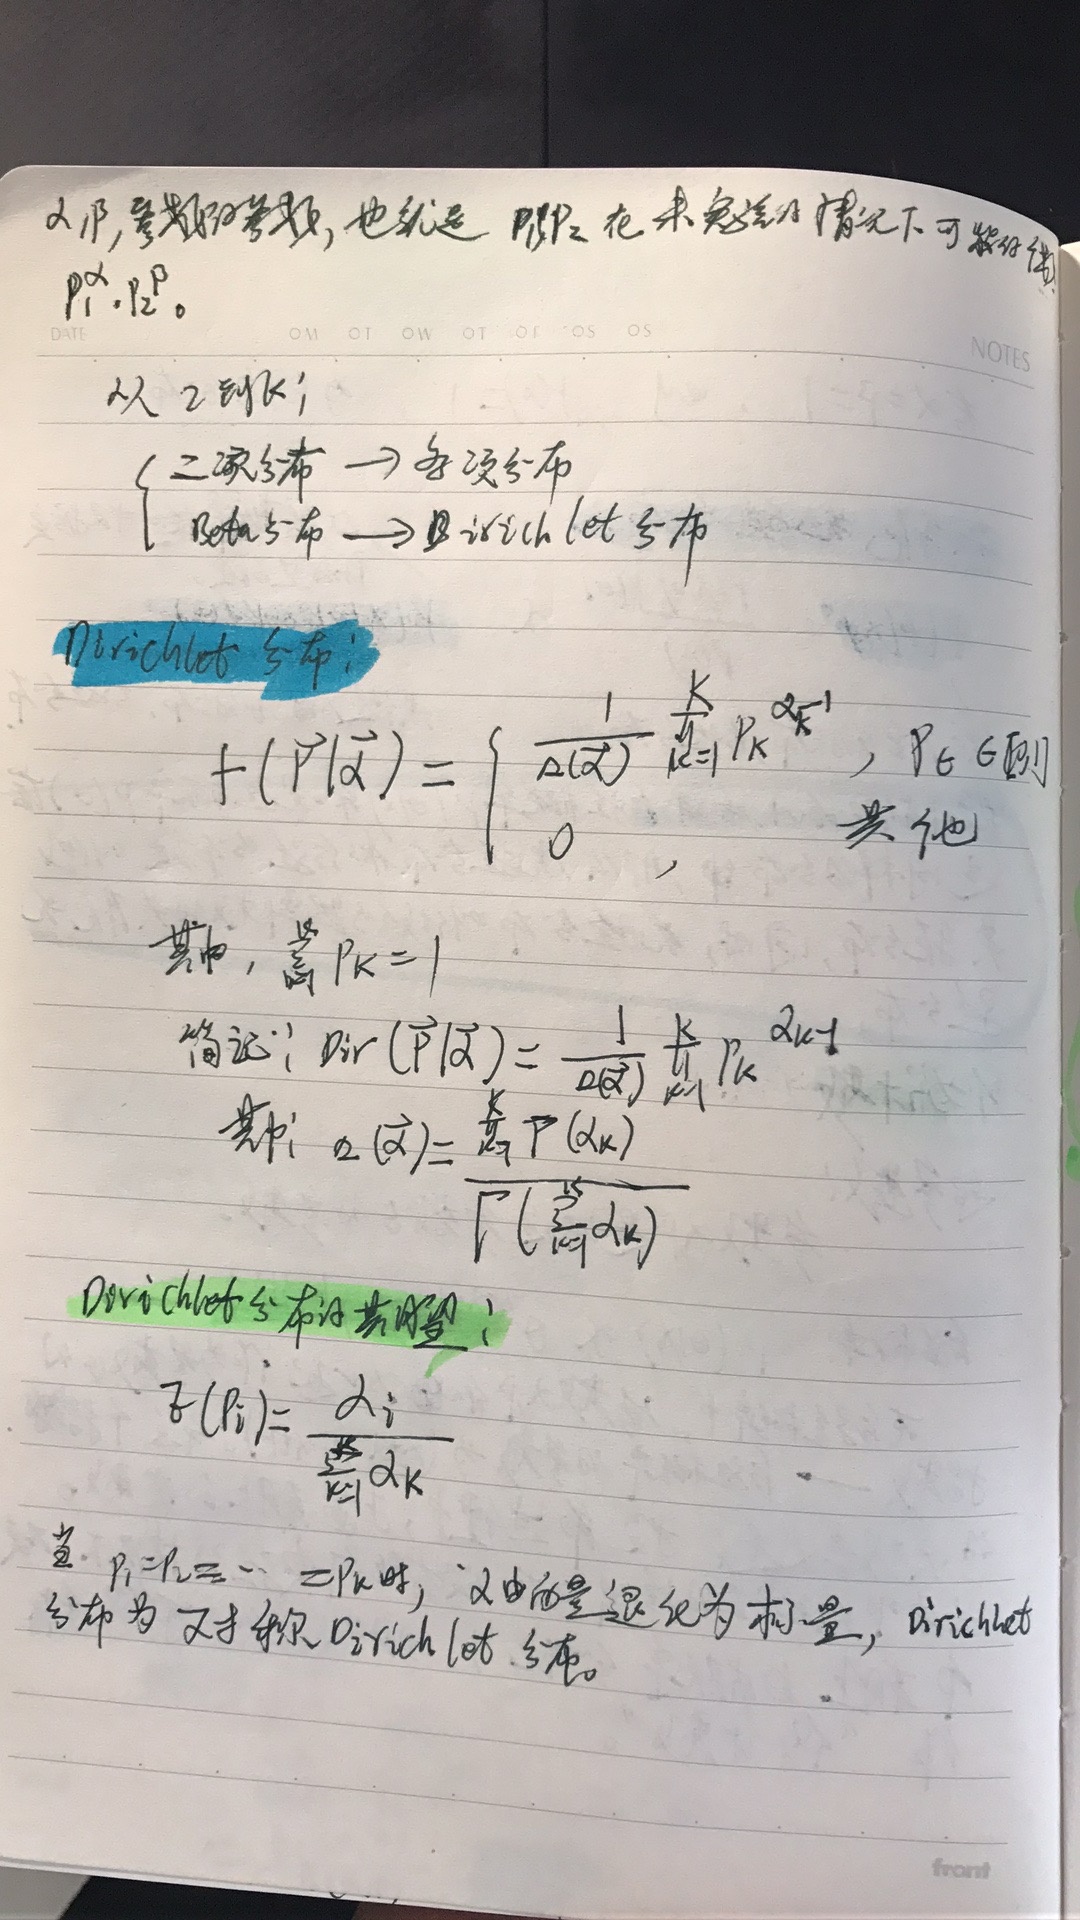 α,β,参数的参数,也就是 P1P2 在未 的情况下可
P₁^α·P₂^β。
DATE
NOTES
从2到K:
二项分布 → 多项分布
Beta分布 → Dirichlet分布
Dirichlet分布:
f(P⃗|α⃗) = { 1/Δ(α⃗) ∏_{k=1}^{K} P_k^{α_k-1} , P_k ∈ [0,1]
0 , 其他
其中, ∑_{k=1}^{K} P_K = 1
简记: Dir(P⃗|α⃗) = 1/Δ(α⃗) ∏_{k=1}^{K} P_k^{α_k-1}
其中: Δ(α⃗) = ∏_{k=1}^{K} Γ(α_K) / Γ(∑_{k=1}^{K} α_K)
Dirichlet分布的共
E(P_i) = α_i / ∑_{k=1}^{K} α_K
当 P₁=P₂=…=P_K时, α由向量退化为标量, Dirichlet
分布为对称Dirichlet分布。
front